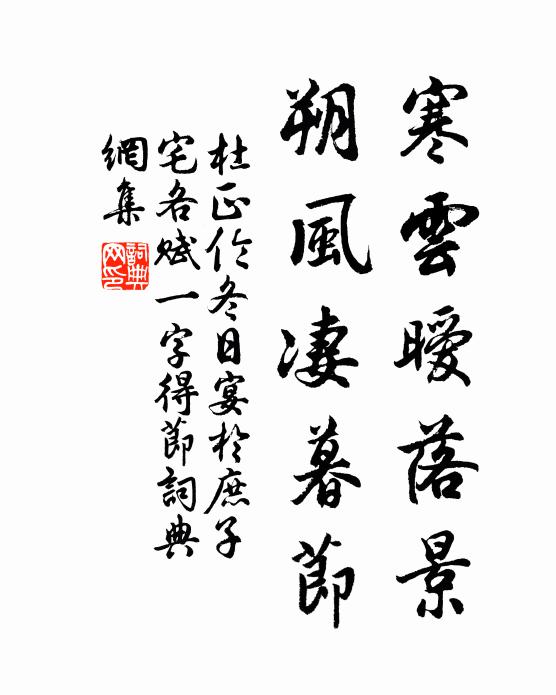 寒雲曖落景
朔風凄暮節
杜正倫冬日宴於庶子
宅各賦一字得節詞典
網集
詞典
网印